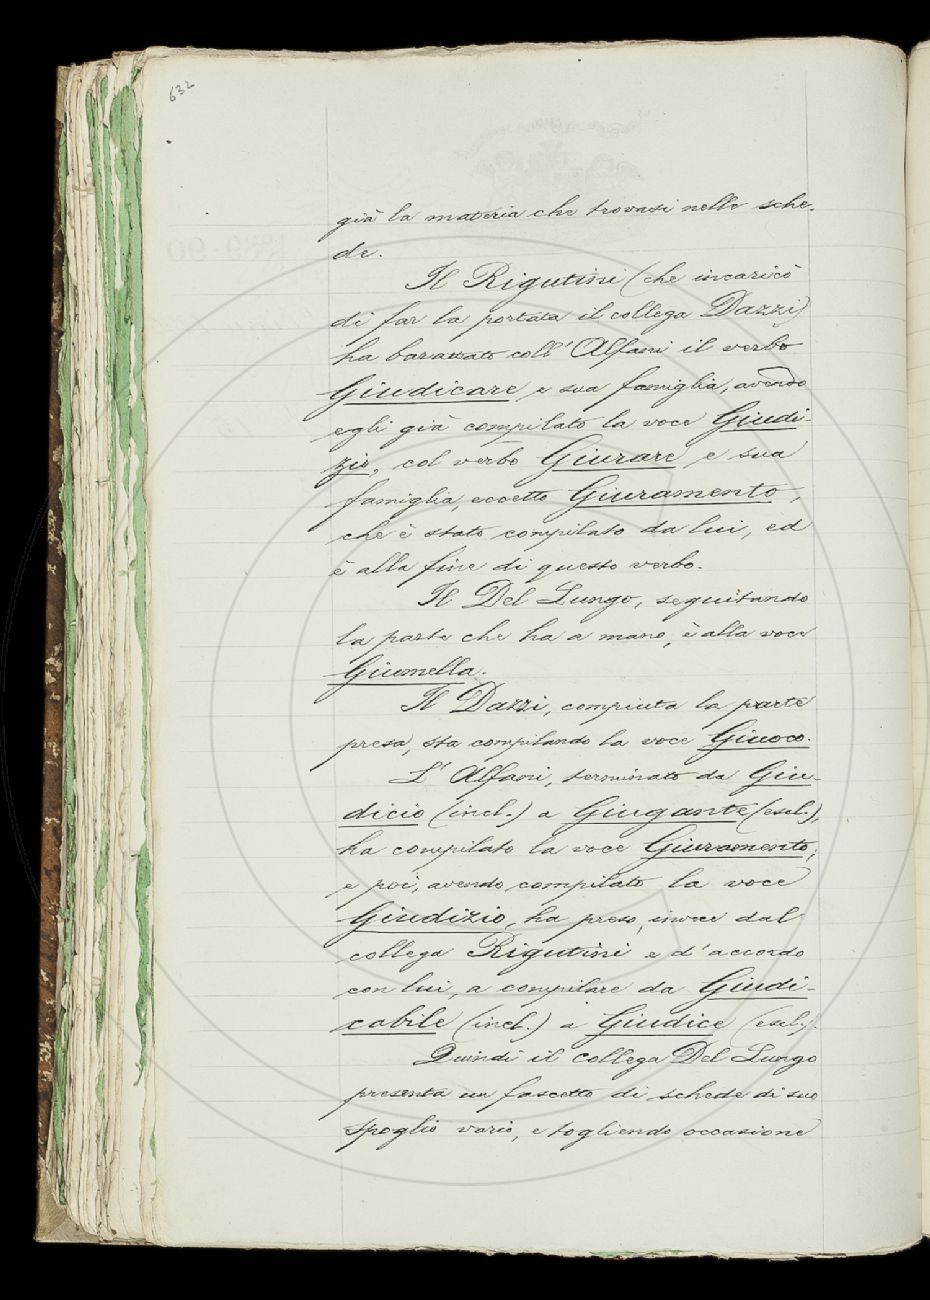 632
già la materia che trovasi nelle sche-
de.
Il Rigutini (che incaricò
di far la portata il collega Dazzi)
ha barattato coll' Alfani il verbo
Giudicare e sua famiglia, avendo
egli già compilato la voce Giudi-
zio, col verbo Giurare e sua
famiglia, eccetto Giuramento,
che è stato compilato da lui, ed
è alla fine di questo verbo.
Il Del Lungo, seguitando
la parte che ha a mano, è alla voce
Giumella.
Il Dazzi, compiuta la parte
presa, sta compilando la voce Giuoco.
L' Alfani, terminato da Giu-
dicio (incl.) a Giugante (escl.),
ha compilato la voce Giuramento;
e poi, avendo compilato la voce
Giudizio, ha preso, invece dal
collega Rigutini e d'accordo
con lui, a compilare da Giudi-
cabile (incl.) a Giudice (escl.).
Quindi il collega Del Lungo
presenta un fascetto di schede di suo
spoglio vario, e togliendo occasione